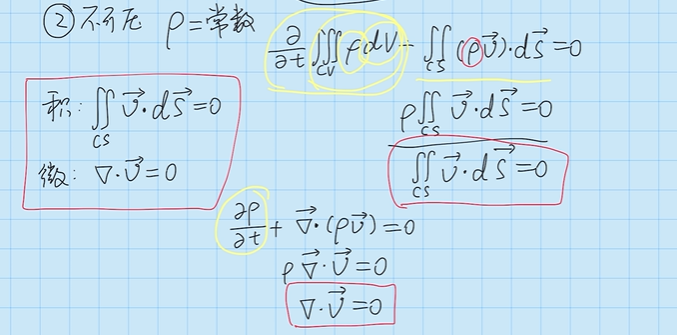 ② 不可压 ρ=常数
∂/∂t ∭_CV ρ dV + ∬_CS (ρv⃗)·ds⃗ = 0
积: ∬_CS v⃗·ds⃗ = 0
ρ∬_CS v⃗·ds⃗ = 0
微: ∇·v⃗ = 0
∬_CS v⃗·ds⃗ = 0
∂ρ/∂t + ∇⃗·(ρv⃗) = 0
ρ∇⃗·v⃗ = 0
∇·v⃗ = 0